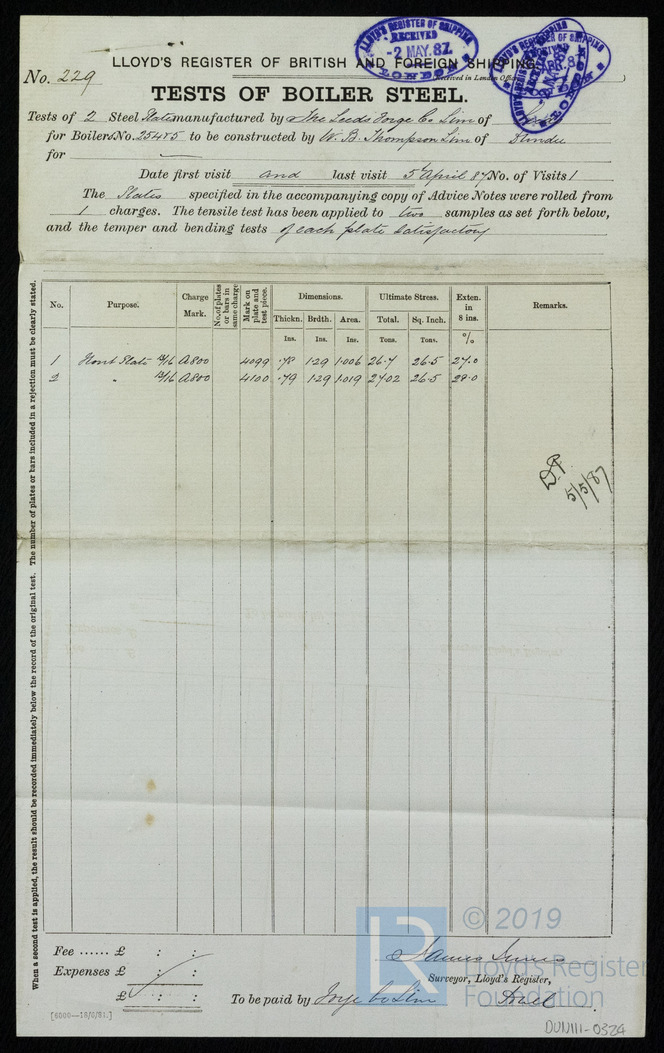 LLOYD'S REGISTER OF SHIPPING
RECEIVED
-2 MAY.87
LONDON
LLOYD'S REGISTER OF BRITISH AND FOREIGN SHIPPING.
No. 229
Received in London Office
TESTS OF BOILER STEEL.
Tests of 2 Steel Plates manufactured by The Leeds Forge Co Lim of
for Boilers No. 25485 to be constructed by W. B. Thompson Lim of Dundee
for
Date first visit and last visit 5th April 87 No. of Visits 1
The Plates specified in the accompanying copy of Advice Notes were rolled from
1 charges. The tensile test has been applied to two samples as set forth below,
and the temper and bending tests of each plate satisfactory
No. Purpose. Charge Mark. No. of plates or bars in same charge Mark on plate and test piece. Dimensions. Ultimate Stress. Exten. in 8 ins. Remarks.
Thickn. Brdth. Area. Total. Sq. Inch.
Ins. Ins. Ins. Tons. Tons. %
1 Front Plate 13/16 A800 4099 .78 1.29 1.006 26.7 26.5 27.0
2 " 13/16 A800 4100 .79 1.29 1.019 27.02 26.5 28.0
5/5/87
When a second test is applied, the result should be recorded immediately below the record of the original test. The number of plates or bars included in a rejection must be clearly stated.
Fee ...... £ : :
Expenses £ : :
£ : :
James
Surveyor, Lloyd's Register,
To be paid by Forge Co Lim
[6000—18/6/81.]
LR
© 2019
Lloyd's Register
Foundation
DUN111-0324